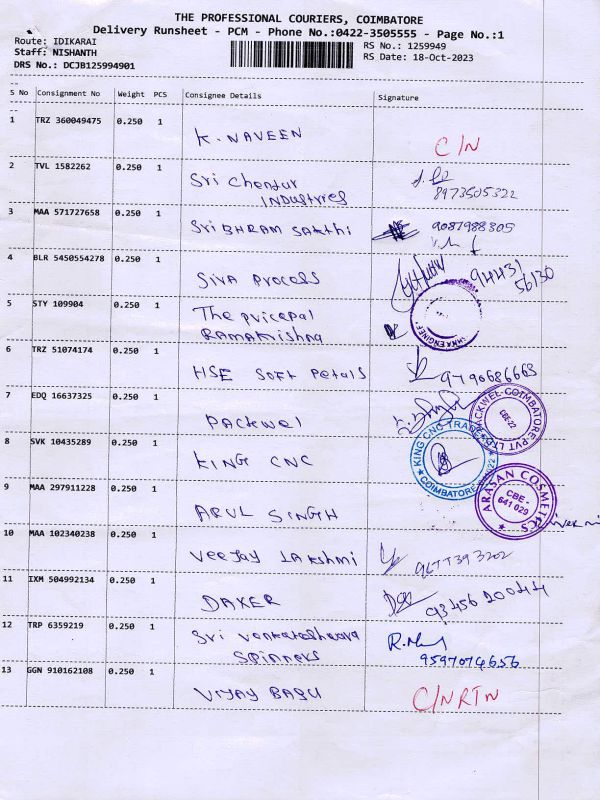 THE PROFESSIONAL COURIERS, COIMBATORE
Delivery Runsheet - PCM - Phone No.:0422-3505555 - Page No.:1
Route: IDIKARAI
RS No.: 1259949
Staff: NISHANTH
RS Date: 18-Oct-2023
DRS No.: DCJB125994901
S No Consignment No Weight PCS Consignee Details Signature
1 TRZ 360049475 0.250 1 K. NAVEEN C/N
2 TVL 1582262 0.250 1 Sri Chendur
INDUSTRIES 8973505322
3 MAA 571727658 0.250 1 Sri BHRAM SAKthi 9087988805
4 BLR 5450554278 0.250 1 Siva Process 94431
56130
5 STY 109904 0.250 1 The pricepal
RAMAKRishna
6 TRZ 51074174 0.250 1 HSE SOFt Petals 9790686663
7 EDQ 16637325 0.250 1 PACKWEl
PACKWEL-COIMBATORE-PVT LTD
CBE-22
8 SVK 10435289 0.250 1 KING CNC
KING CNC
COIMBATORE
9 MAA 297911228 0.250 1 ARUL SINGH
ARASAN COSMETICS
CBE -
641 029
10 MAA 102340238 0.250 1 Veejay LAKshmi 9677393202
11 IXM 504992134 0.250 1 DAKER 93456 20044
12 TRP 6359219 0.250 1 Sri Venkateshwara
Spinners 9597074656
13 GGN 910162108 0.250 1 VIJAY BABU C/N RTN